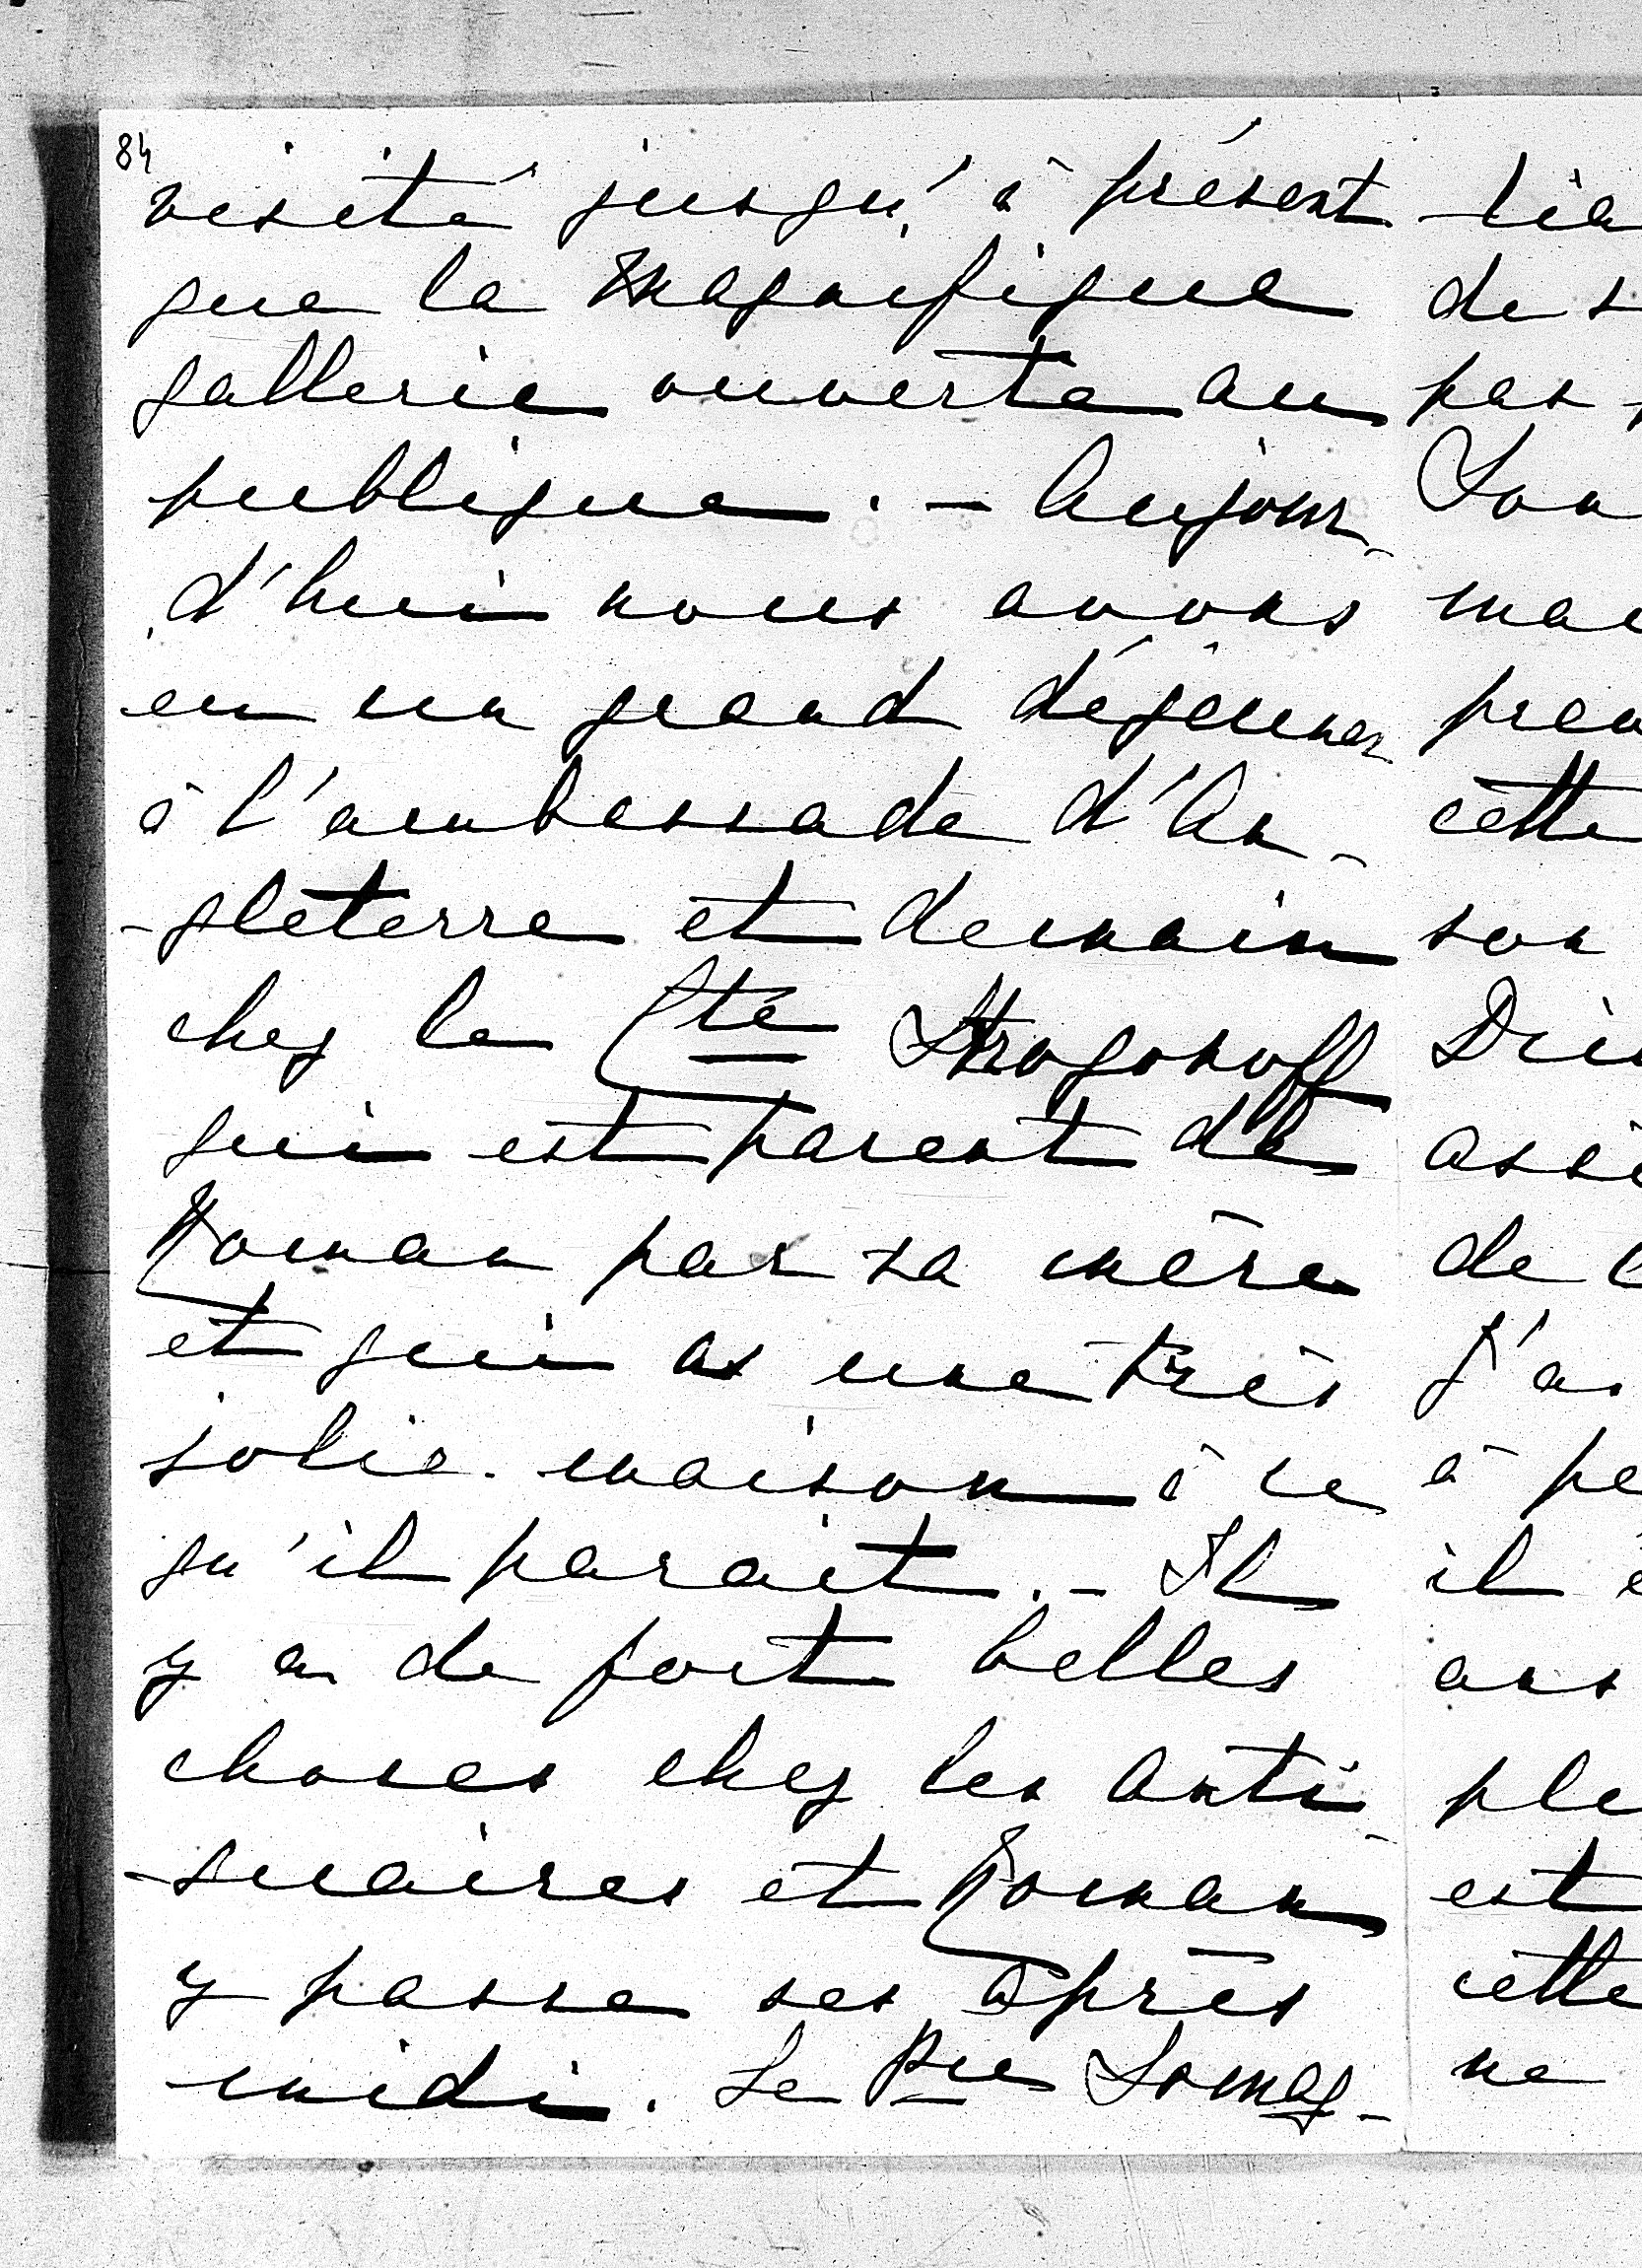 84
visité jusqu'à présent
que la magnifique
gallerie ouverte au
publique. - Aujour-
d'hui nous avons
eu un grand déjeuner
à l'ambassade d'An-
-gleterre et demain
chez le Cte Strogonoff
qui est parent de
Roman par sa mère
et qui as une très
jolie maison à ce
qu'il parait. - Il
y a de fort belles
choses chez les anti-
-quaires et Roman
y passe ses après
midi. Le Pce
de
pas
cette
son
de
à
il
est
cette
ne